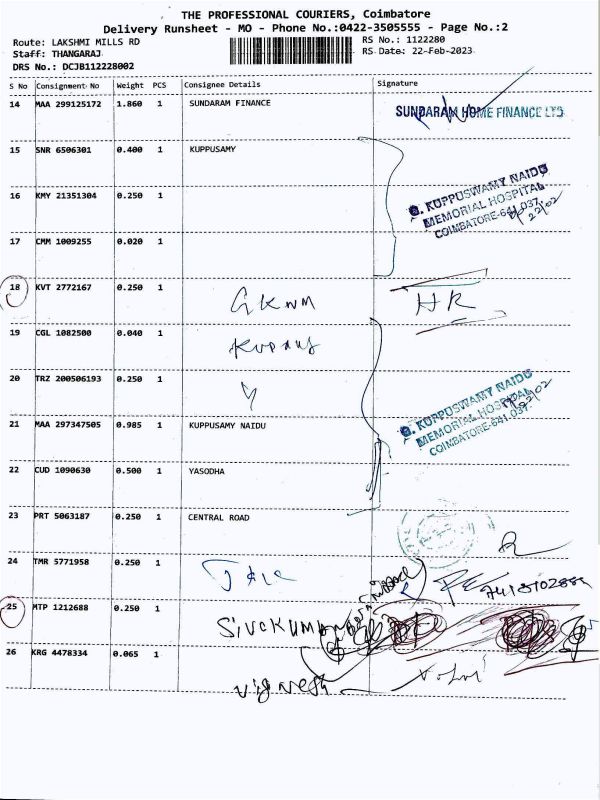 THE PROFESSIONAL COURIERS, Coimbatore
Delivery Runsheet - MO - Phone No.:0422-3505555 - Page No.:2
Route: LAKSHMI MILLS RD
RS No.: 1122280
Staff: THANGARAJ
RS Date: 22-Feb-2023
DRS No.: DCJB112228002
S No Consignment No Weight PCS Consignee Details Signature
14 MAA 299125172 1.860 1 SUNDARAM FINANCE
SUNDARAM HOME FINANCE LTD
15 SNR 6506301 0.400 1 KUPPUSAMY
G. KUPPUSWAMY NAIDU
MEMORIAL HOSPITAL
COIMBATORE-641 037.
22/02
16 KMY 21351304 0.250 1
17 CMM 1009255 0.020 1
18 KVT 2772167 0.250 1 GKNM HR
19 CGL 1082500 0.040 1
20 TRZ 200506193 0.250 1
G. KUPPUSWAMY NAIDU
MEMORIAL HOSPITAL
COIMBATORE-641 037.
22/02
21 MAA 297347505 0.985 1 KUPPUSAMY NAIDU
22 CUD 1090630 0.500 1 YASODHA
23 PRT 5063187 0.250 1 CENTRAL ROAD
24 TMR 5771958 0.250 1
25 MTP 1212688 0.250 1
26 KRG 4478334 0.065 1
Vignesh